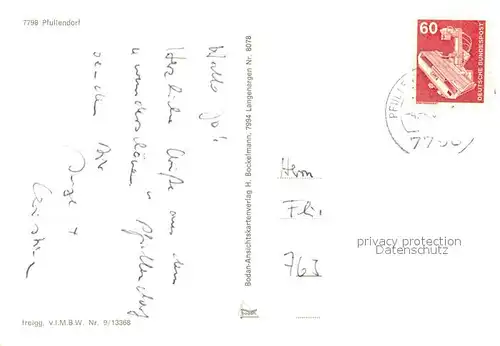 7798 Pfullendorf
Hallo
Herzliche Grüße aus dem
wunderschönen Pfullendorf
senden Dir
Bodan-Ansichtskartenverlag H. Bockelmann, 7994 Langenargen Nr. 8078
60
DEUTSCHE BUNDESPOST
Herrn
763
privacy protection
Datenschutz
freigg. v.I.M.B.W. Nr. 9/13368